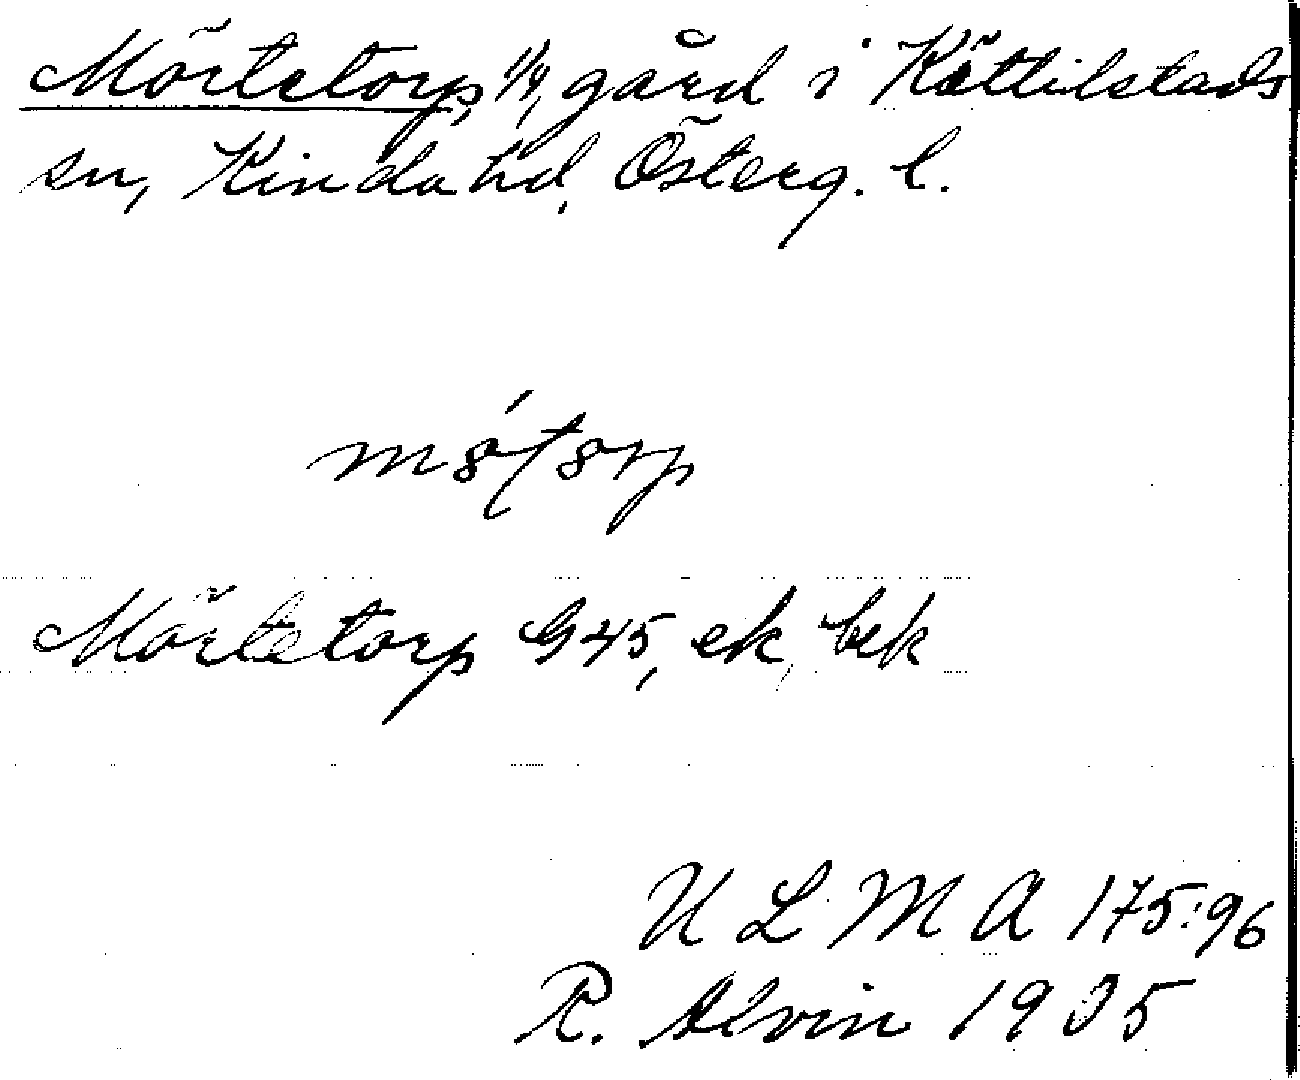 Mörtetorp, 1/4, gård i Kättilstads
sn, Kinda hd, Österg. l.
Mörtetorp G45, ek, bek
ULMA 175:96
R. Alvin 1935